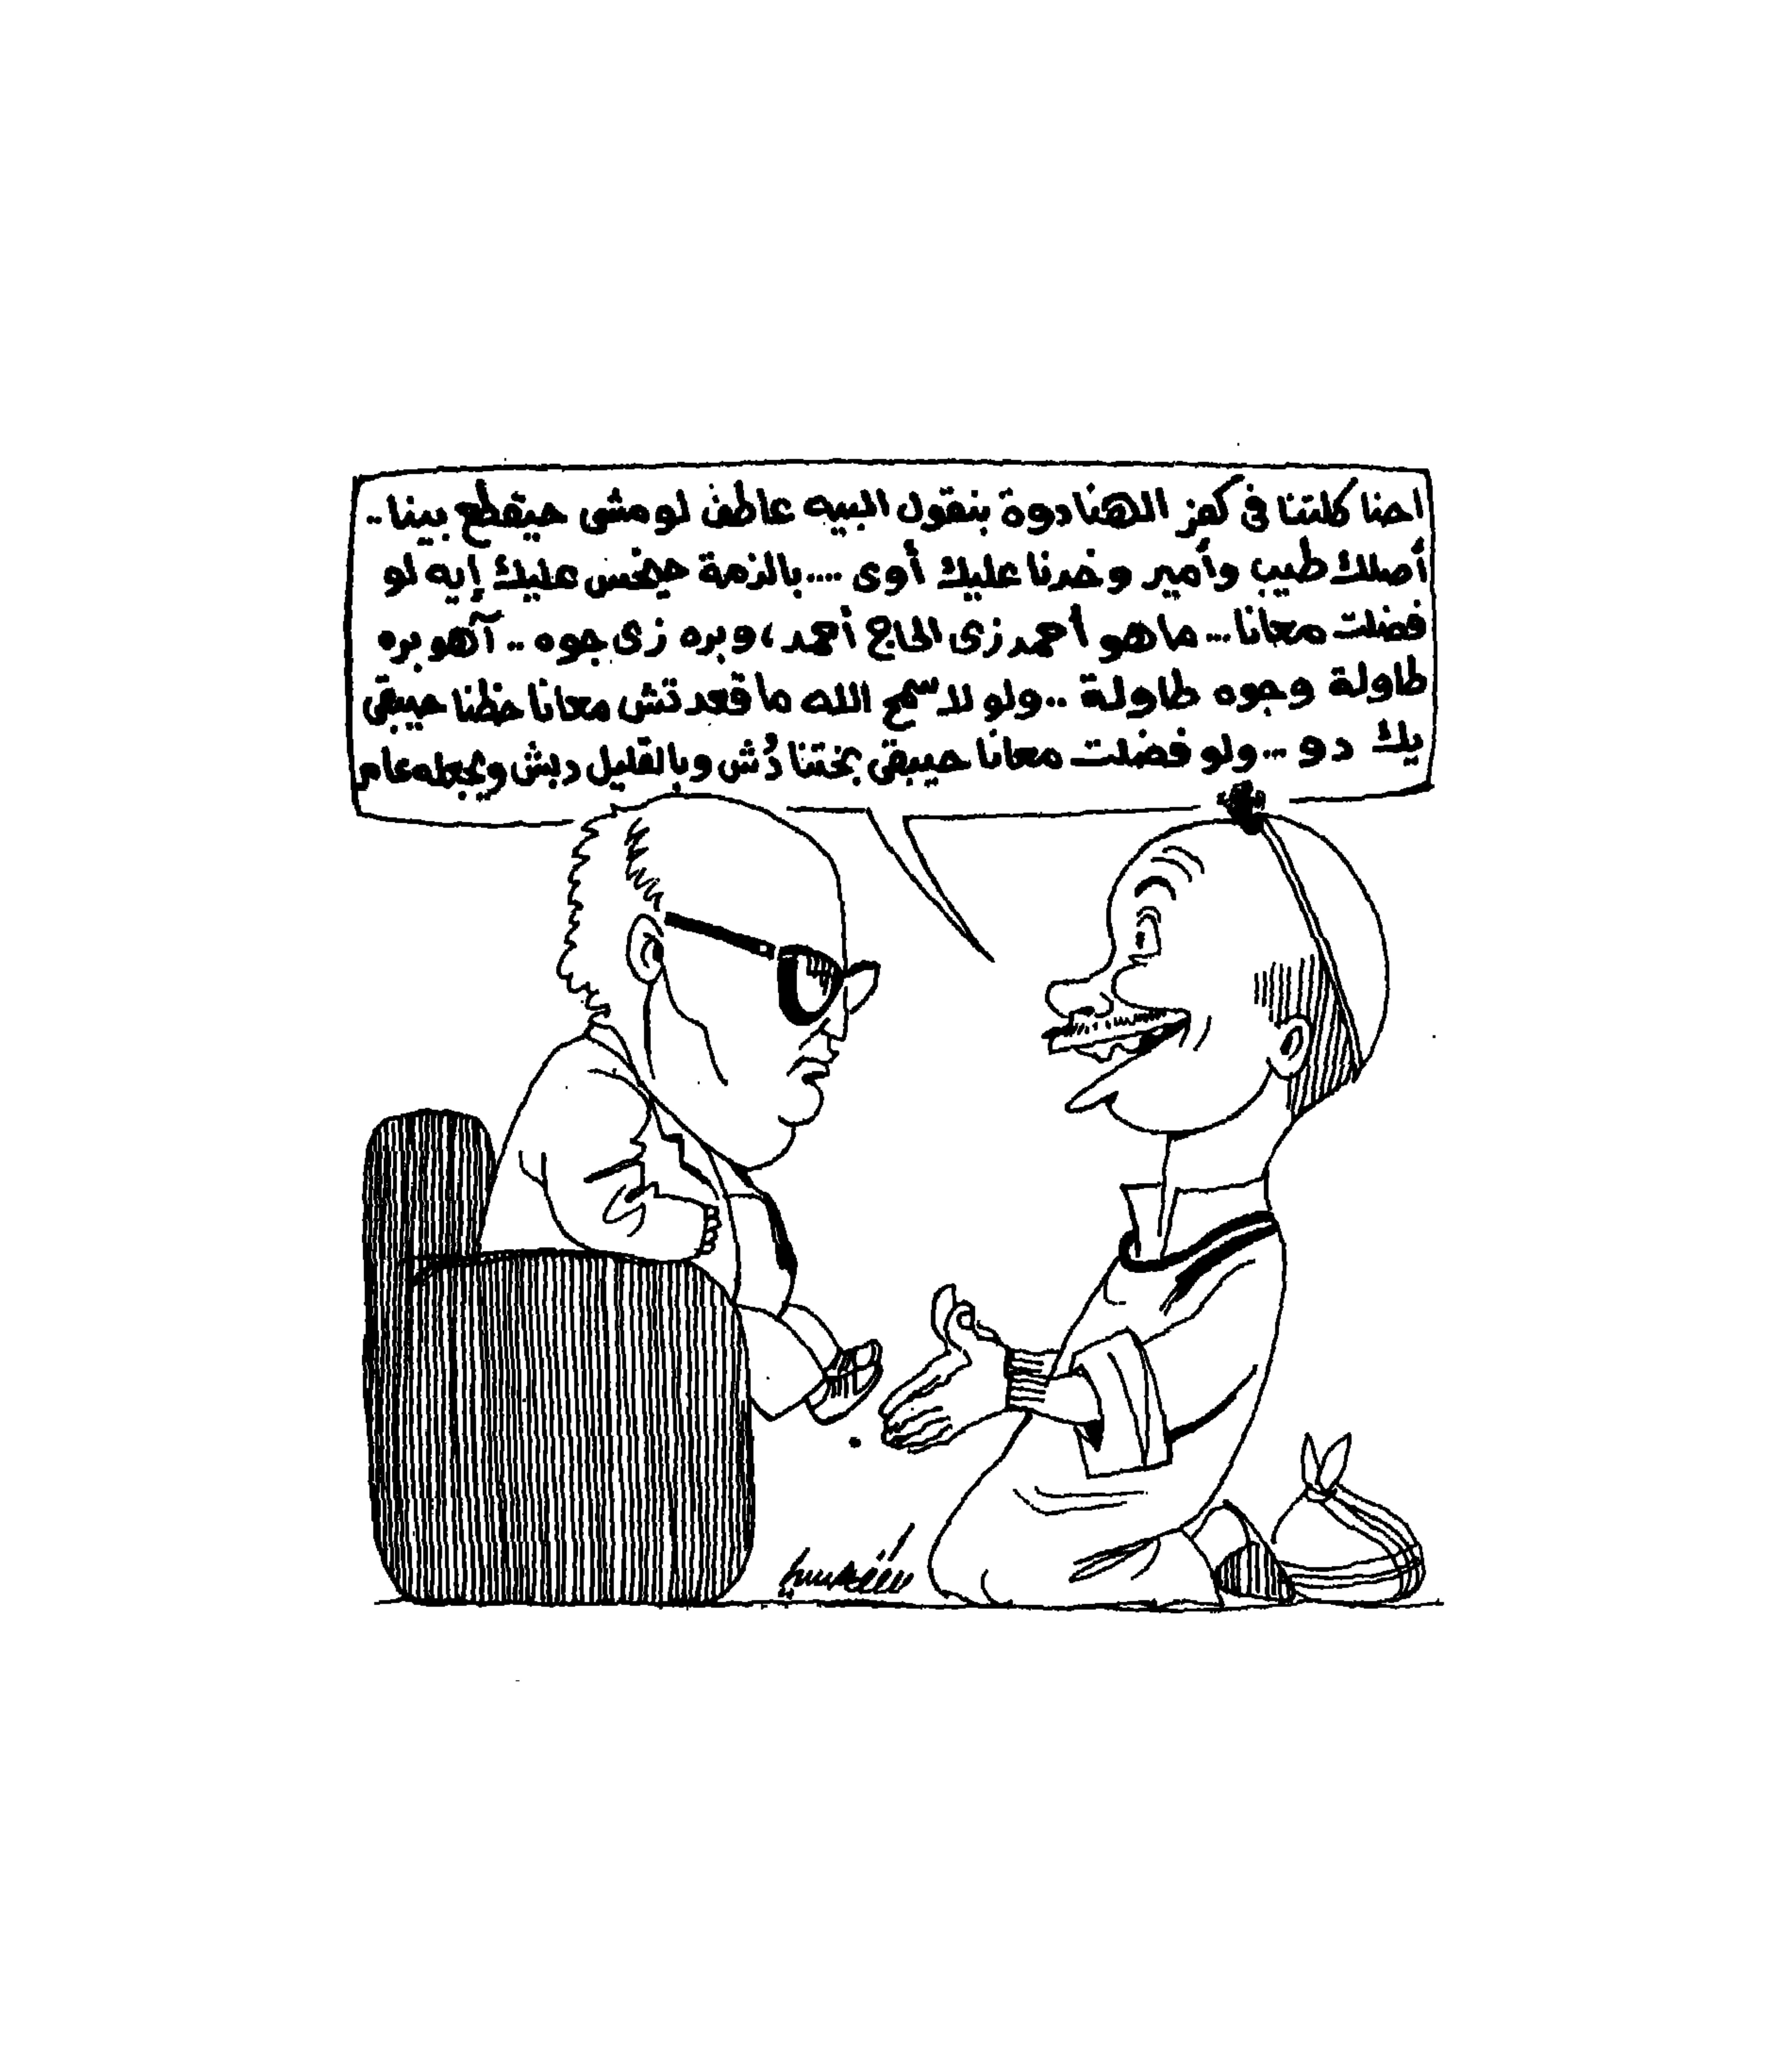 احنا كلتنا فى كفر الهنادوة بنقول البيه عاطف لو مشى حيقطع بينا..
أصلك طيب وأمير وخدنا عليك أوى .... بالزمة حيخس عليك إيه لو
فضلت معانا ... ما هو أحمد زى الحاج أحمد، وبره زى جوه .. آهو بره
طاولة وجوه طاولة .. ولو لا سمح الله ما قعدتش معانا حظنا حيبقى
يك دو ... ولو فضلت معانا حيبقى بختنا دُش وبالقليل دبش ويجعله عام